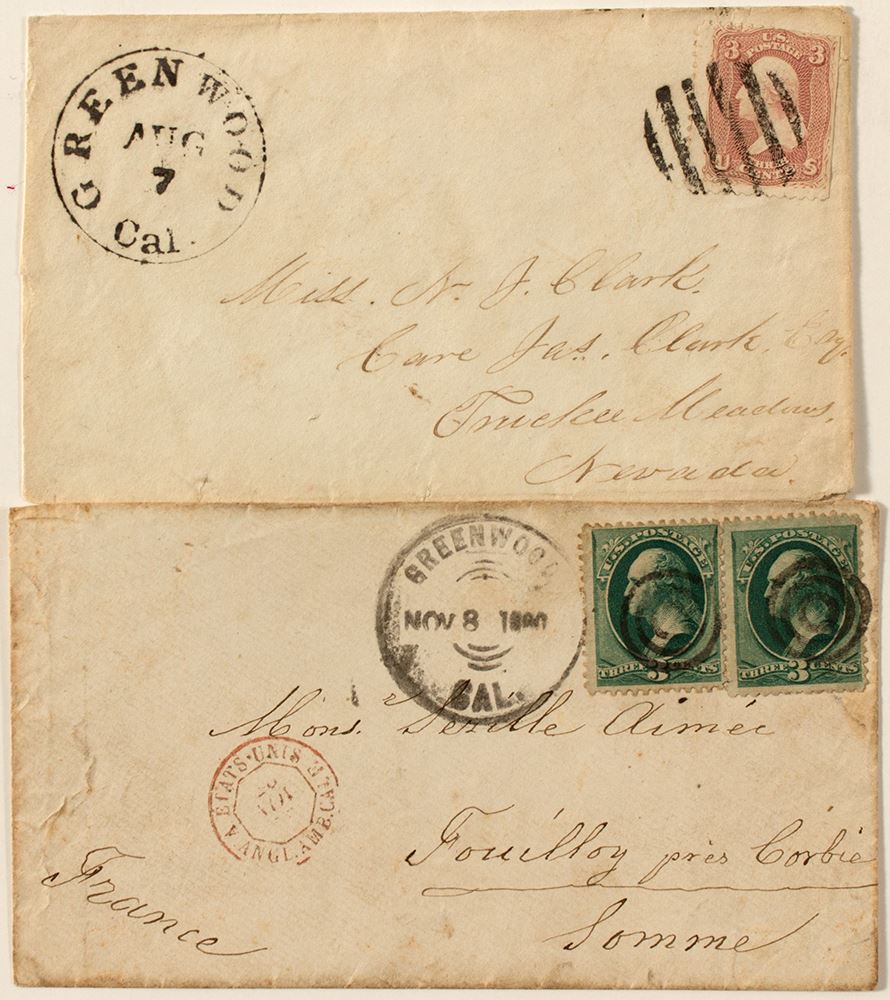 GREENWOOD
AUG
7
Cal.
3 U.S. 3
POSTAGE
U S
CENTS
Miss. N. J. Clark.
Care Jas. Clark, Esq.
Truckee Meadows,
Nevada.
GREENWOOD
NOV 8 1880
CAL.
U.S. POSTAGE
THREE 3 CENTS
U.S. POSTAGE
THREE 3 CENTS
Mons. Aimée
ETATS-UNIS
NOV
ANGL. AMB.
Fouilloy près Corbie
Somme
France